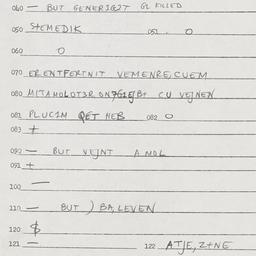 040 — BUT GENERIG2T GL FILLED
050 STEMEDIK 051 . O
060 O
070 ERENTFERTNIT VEMENRECUEM
080 MITAHOLOT3R CU VEJNEN
081 PLUCIM QET HEB 082 O
083 +
090 — BUT VEJNT A MOL
091 +
100 —
110 — BUT ) BA, LEVEN
120 $
121 — 122 ATJE, Z+NE